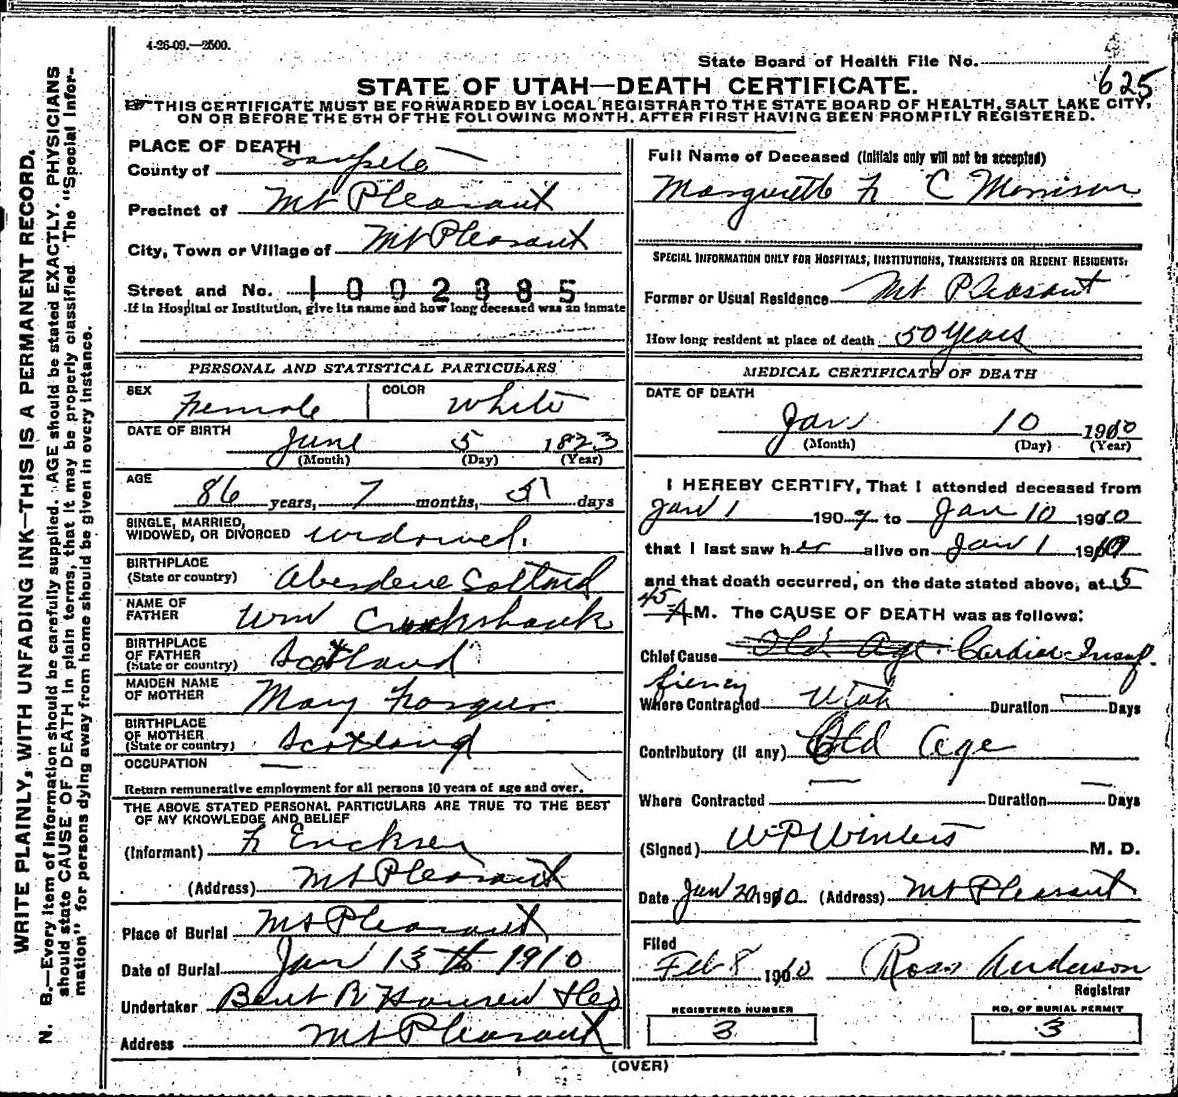 4-26-09.—2500.
State Board of Health File No.
625
STATE OF UTAH—DEATH CERTIFICATE.
THIS CERTIFICATE MUST BE FORWARDED BY LOCAL REGISTRAR TO THE STATE BOARD OF HEALTH, SALT LAKE CITY,
ON OR BEFORE THE 5TH OF THE FOLLOWING MONTH, AFTER FIRST HAVING BEEN PROMPTLY REGISTERED.
WRITE PLAINLY, WITH UNFADING INK—THIS IS A PERMANENT RECORD.
N. B.—Every item of information should be carefully supplied. AGE should be stated EXACTLY. PHYSICIANS
should state CAUSE OF DEATH in plain terms, that it may be properly classified. The "Special Infor-
mation" for persons dying away from home should be given in every instance.
PLACE OF DEATH
County of Sanpete
Precinct of Mt Pleasant
City, Town or Village of Mt Pleasant
Street and No. 1002385
If in Hospital or Institution, give its name and how long deceased was an inmate
PERSONAL AND STATISTICAL PARTICULARS
SEX Female COLOR White
DATE OF BIRTH June 5 1823
(Month) (Day) (Year)
AGE
86 years, 7 months, days
SINGLE, MARRIED,
WIDOWED, OR DIVORCED widowed.
BIRTHPLACE
(State or country) Aberdene Scotland
NAME OF
FATHER Wm Cruikshank
BIRTHPLACE
OF FATHER
(State or country) Scotland
MAIDEN NAME
OF MOTHER Mary
BIRTHPLACE
OF MOTHER
(State or country) Scotland
OCCUPATION —
Return remunerative employment for all persons 10 years of age and over.
THE ABOVE STATED PERSONAL PARTICULARS ARE TRUE TO THE BEST
OF MY KNOWLEDGE AND BELIEF
(Informant) Ericksen
(Address) Mt Pleasant
Place of Burial Mt Pleasant
Date of Burial Jan 13th 1910
Undertaker Bent R Hansen
Address Mt Pleasant
Full Name of Deceased (Initials only will not be accepted)
C Morrison
SPECIAL INFORMATION ONLY FOR HOSPITALS, INSTITUTIONS, TRANSIENTS OR RECENT RESIDENTS:
Former or Usual Residence Mt Pleasant
How long resident at place of death 50 Years
MEDICAL CERTIFICATE OF DEATH
DATE OF DEATH
Jan 10 1910
(Month) (Day) (Year)
I HEREBY CERTIFY, That I attended deceased from
Jan 1 1909 to Jan 10 1910
that I last saw her alive on Jan 1 1910
and that death occurred, on the date stated above, at 5
45 A M. The CAUSE OF DEATH was as follows:
Chief Cause Old Age Cardiac Insuf-
ficiency
Where Contracted Utah Duration — Days
Contributory (if any) Old Age
Where Contracted — Duration — Days
(Signed) W P Winters M. D.
Date Jan 20 1910 (Address) Mt Pleasant
Filed
Feb 8 1910 Ross Anderson
Registrar
REGISTERED NUMBER
3
NO. OF BURIAL PERMIT
3
(OVER)